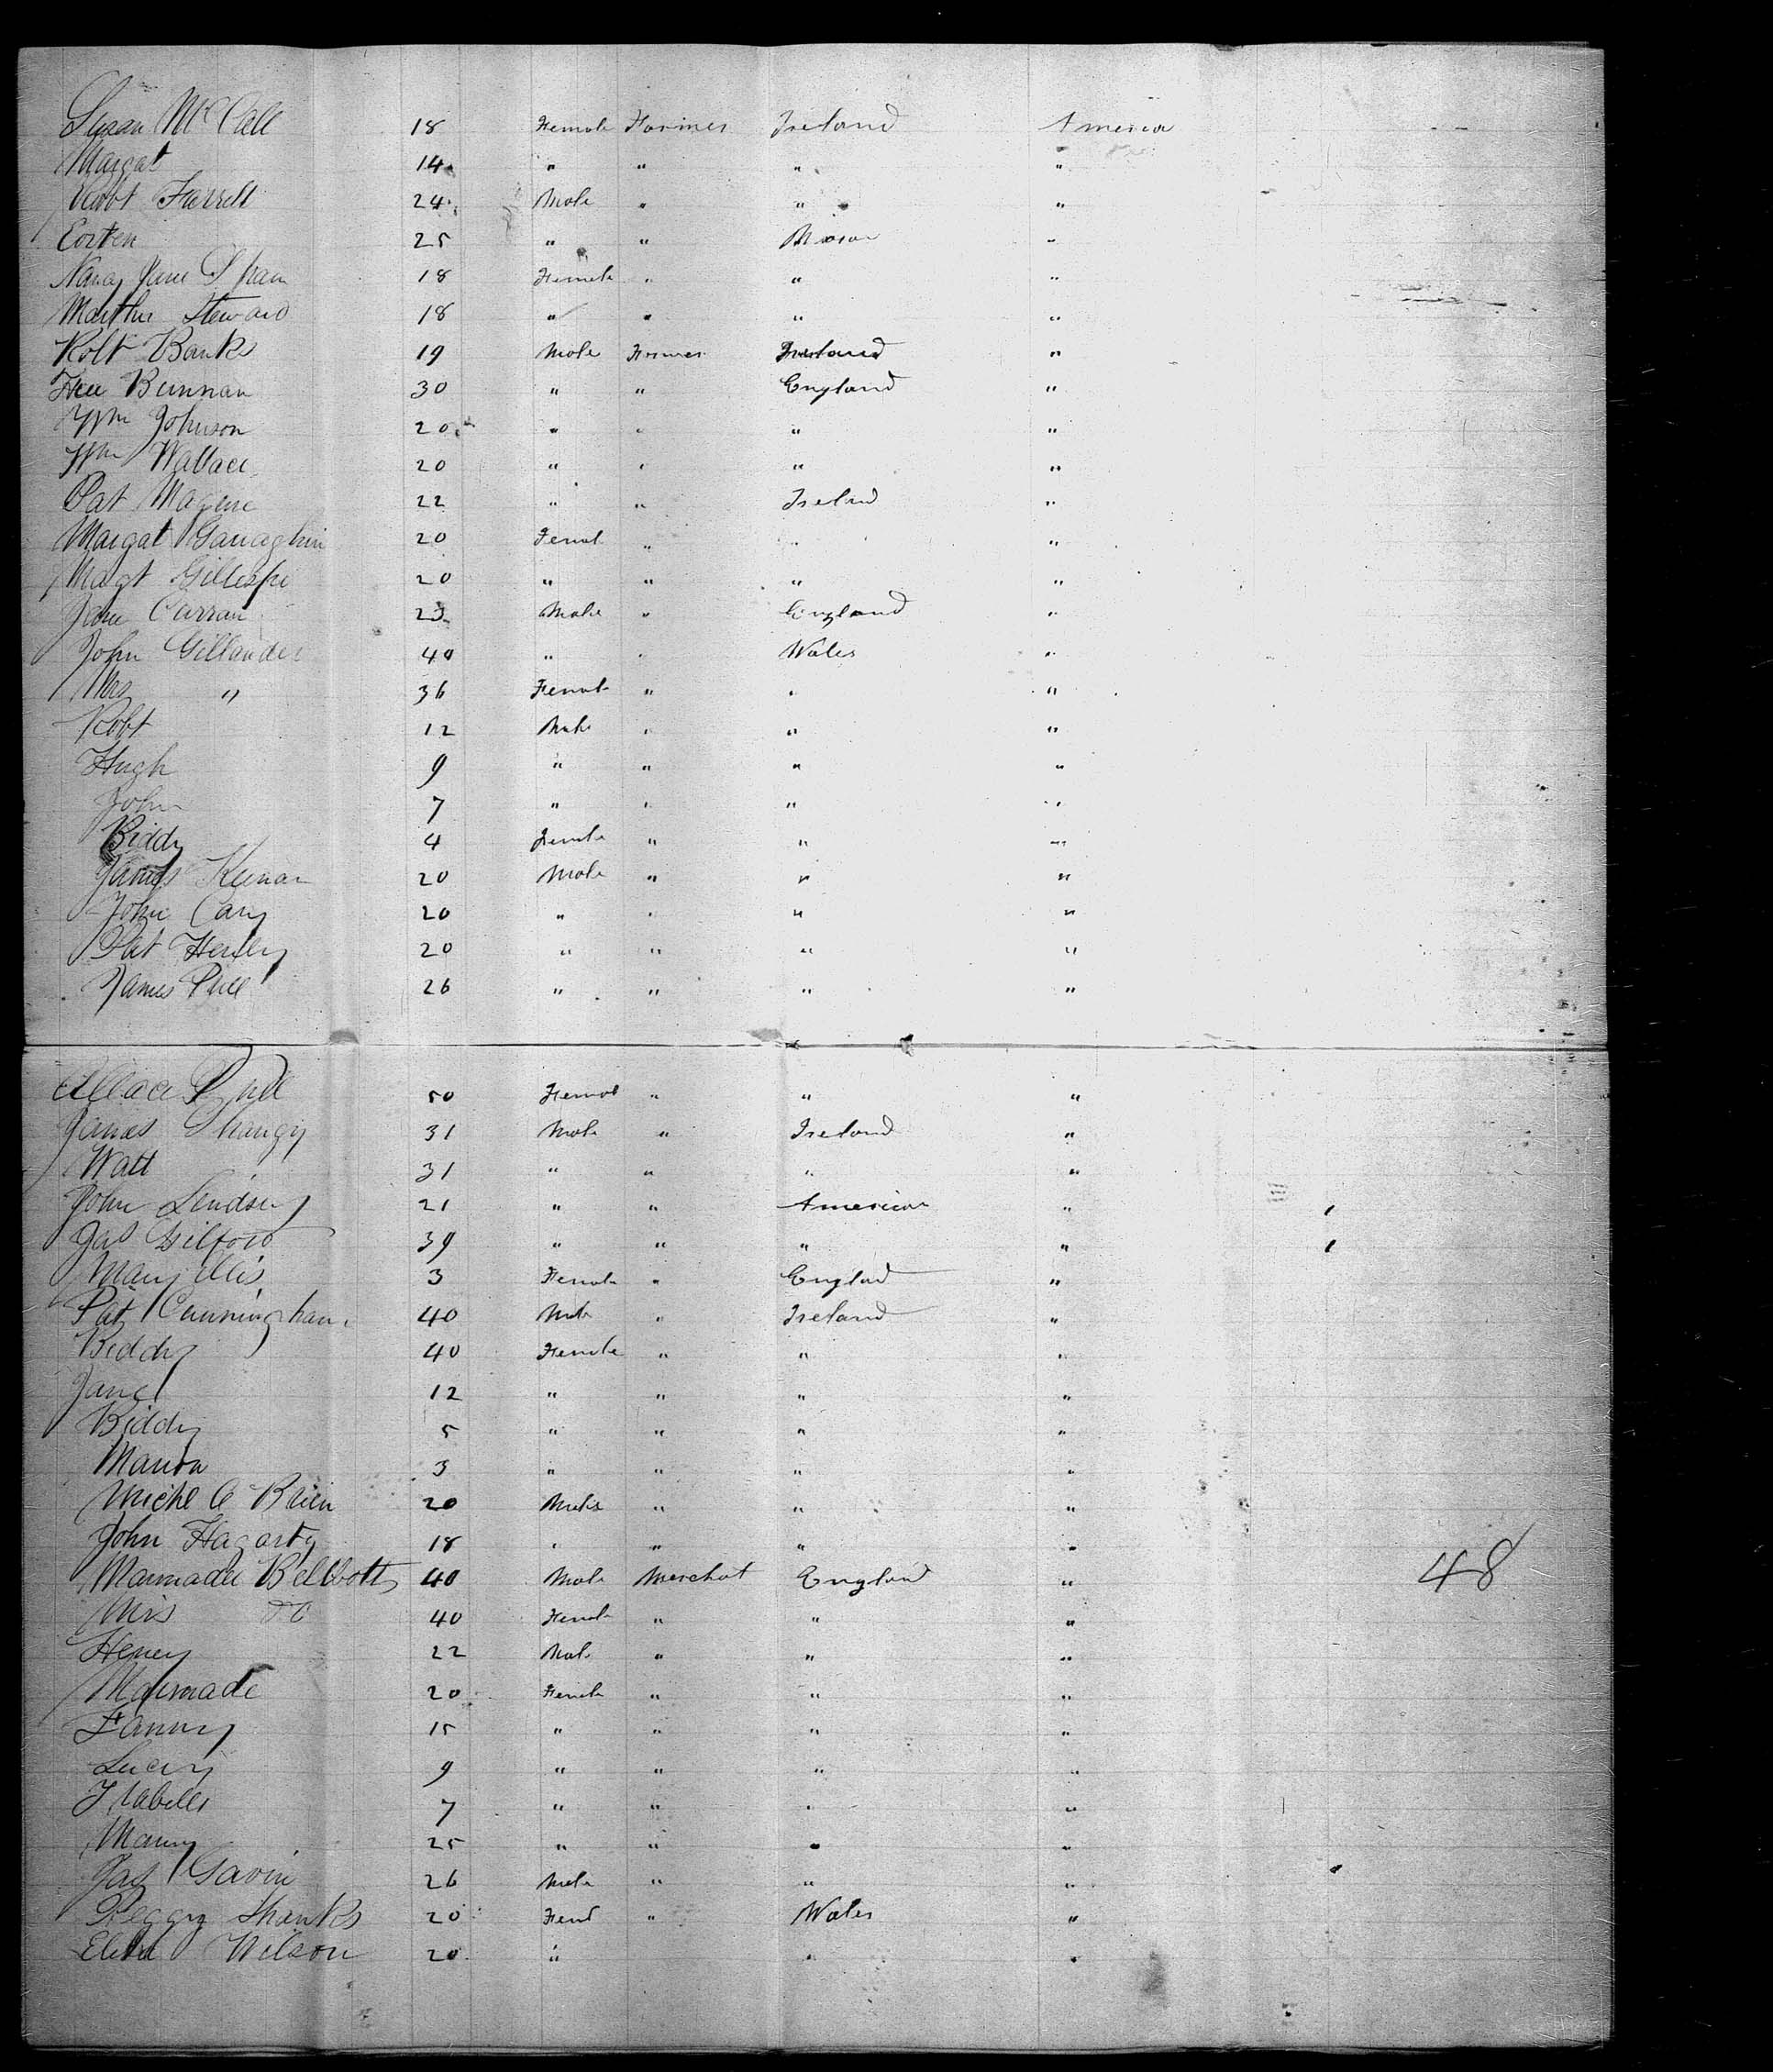 Susan McCall 18 Female Farmer Ireland America
Margat 14 " " " "
Robt Farrell 24 Male " " "
25 " " "
Jane 18 Female " " "
Martha Steward 18 " " " "
Robt Banks 19 Male Farmer Ireland "
Bunnan 30 " " England "
Wm Johnson 20 " " " "
Wm Wallace 20 " " " "
Pat 22 " " Irelnd "
Margat 20 Femal " " "
Magt Gillespie 20 " " " "
Jane Curran 23 Male " England "
John Gillander 40 " " Wales "
Mrs " 36 Femal " " "
Robt 12 Male " " "
Hugh 9 " " " "
John 7 " " " "
Biddy 4 Female " " "
James Keenan 20 Male " " "
John Cary 20 " " " "
Pat Henley 20 " " " "
James 26 " " " "
50 Femal " " "
James 31 Male " Ireland "
Watt 31 " " " "
John Lindsey 21 " " American " 1
Jas Gilford 39 " " " " 1
Mary 3 Female " Englad "
Pat Cunningham 40 Male " Ireland "
Biddy 40 Female " " "
Jane 12 " " " "
Biddy 5 " " " "
3 " " " "
Michl O Brien 20 Male " " "
John Hagarty 18 " " " "
40 Male Merchat England " 48
Mrs Do 40 Female " " "
Henery 22 Male " " "
Marmade 20 Female " " "
Fanny 15 " " " "
Lucey 9 " " " "
7 " " " "
25 " " " "
Jas Gavin 26 Male " " "
Peggy Shanks 20 Feml " Wales "
Wilson 20 " " "